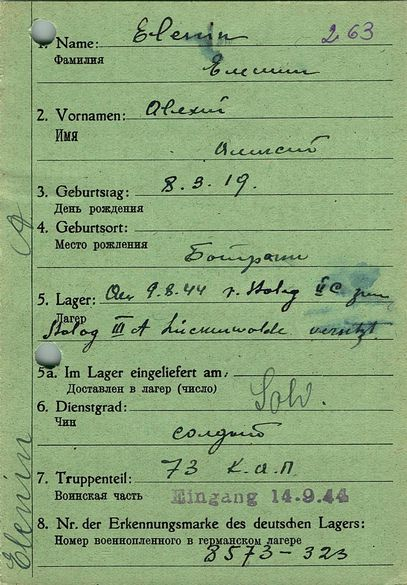 1. Name: Elenin 263
Фамилия Еленин
2. Vornamen: Alexii
Имя
Алексей
3. Geburtstag: 8.3.19.
День рождения
4. Geburtsort:
Место рождения
5. Lager: 9.8.44 v. Stalag II C zum
Лагер
Stalag III A Luckenwalde versetzt.
5a. Im Lager eingeliefert am:
Доставлен в лагер (число)
6. Dienstgrad: Sold.
Чин
солдат
7. Truppenteil: 73 К.а.п
Воинская часть Eingang 14.9.44
8. Nr. der Erkennungsmarke des deutschen Lagers:
Номер военнопленного в германском лагере
8573-323
Elenin A